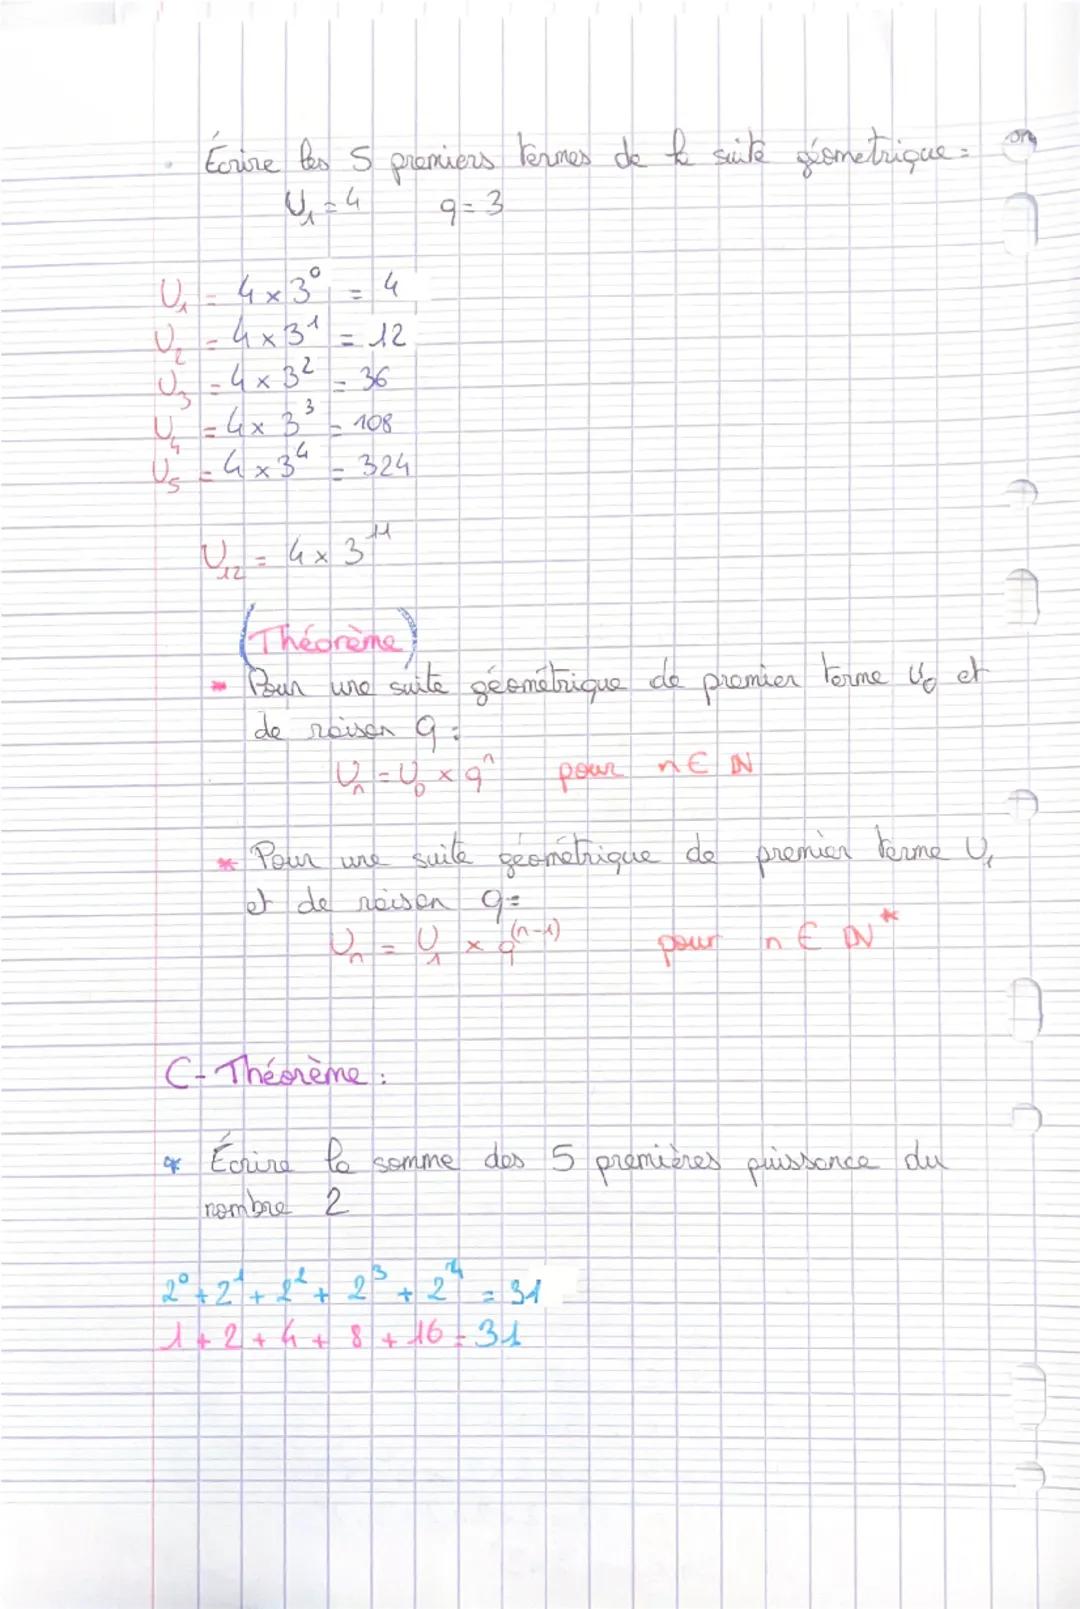 Écrire les 5 premiers termes de la suite géometrique =
U₁ = 4 q = 3
U₁ = 4 × 3⁰ = 4
U₂ = 4 × 3¹ = 12
U₃ = 4 × 3² = 36
U₄ = 4 × 3³ = 108
U₅ = 4 × 3⁴ = 324
U₁₂ = 4 × 3¹¹
(Théorème)
* Pour une suite géométrique de premier terme U₀ et
de raison q :
Uₙ = U₀ × qⁿ pour n ∈ ℕ
* Pour une suite géométrique de premier terme U₁
et de raison q =
Uₙ = U₁ × q⁽ⁿ⁻¹⁾ pour n ∈ ℕ*
C- Théorème :
* Écrire la somme des 5 premières puissance du
nombre 2
2⁰ + 2¹ + 2² + 2³ + 2⁴ = 31
1 + 2 + 4 + 8 + 16 = 31